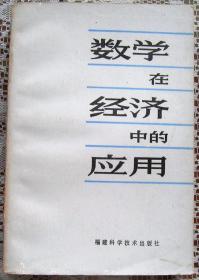 数学
在
经济
中的
应用
福建科学技术出版社